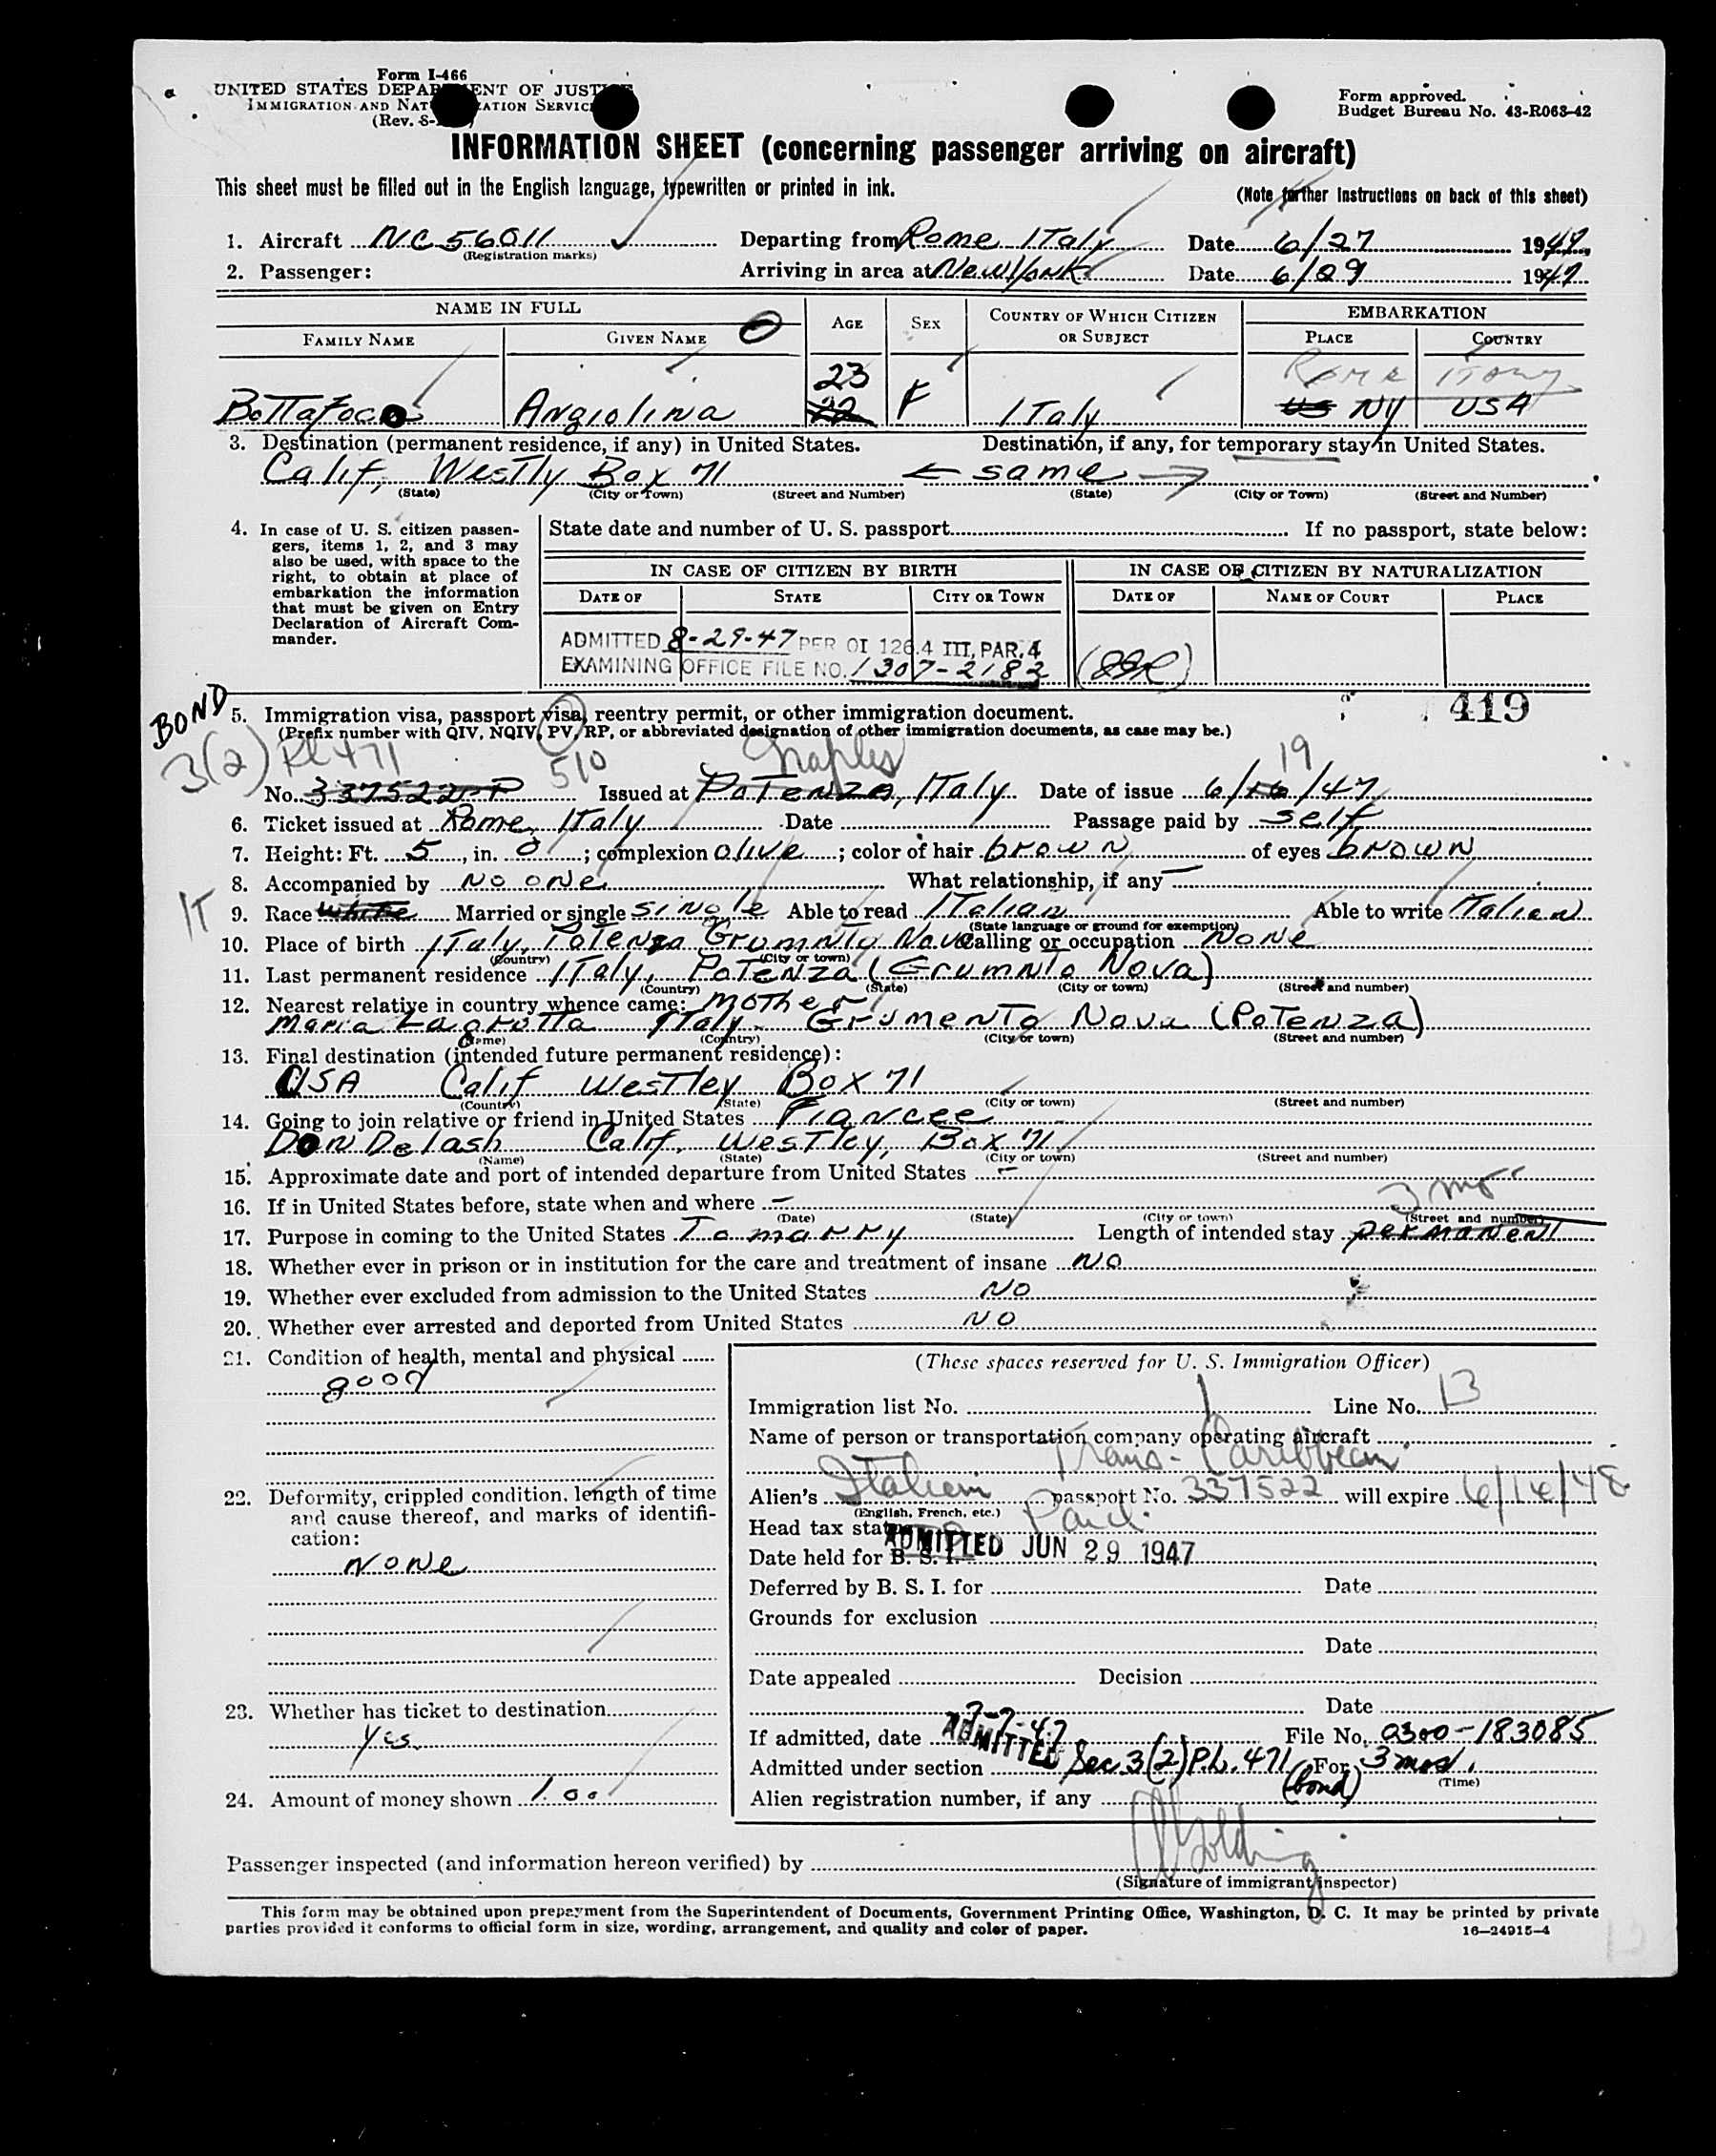 Form I-466
UNITED STATES DEPARTMENT OF JUSTICE
IMMIGRATION AND NATURALIZATION SERVICE
(Rev. 8-
Form approved.
Budget Bureau No. 43-R063-42
INFORMATION SHEET (concerning passenger arriving on aircraft)
This sheet must be filled out in the English language, typewritten or printed in ink.
(Note further instructions on back of this sheet)
1. Aircraft NC 56011 Departing from Rome Italy Date 6/27 1947
(Registration marks)
2. Passenger: Arriving in area at New York Date 6/29 1947
NAME IN FULL AGE SEX COUNTRY OF WHICH CITIZEN OR SUBJECT EMBARKATION
FAMILY NAME GIVEN NAME PLACE COUNTRY
23 Rome Italy
Bottafoco Angiolina 22 F Italy US NY USA
3. Destination (permanent residence, if any) in United States. Destination, if any, for temporary stay in United States.
Calif, Westly Box 71 ← same →
(State) (City or Town) (Street and Number) (State) (City or Town) (Street and Number)
4. In case of U. S. citizen passengers, items 1, 2, and 3 may also be used, with space to the right, to obtain at place of embarkation the information that must be given on Entry Declaration of Aircraft Commander.
State date and number of U. S. passport If no passport, state below:
IN CASE OF CITIZEN BY BIRTH IN CASE OF CITIZEN BY NATURALIZATION
DATE OF STATE CITY OR TOWN DATE OF NAME OF COURT PLACE
ADMITTED 8-29-47 PER OI 126.4 III, PAR. 4
EXAMINING OFFICE FILE NO. 1307-2182
419
BOND
5. Immigration visa, passport visa, reentry permit, or other immigration document.
(Prefix number with QIV, NQIV, PV, RP, or abbreviated designation of other immigration documents, as case may be.)
3(2) PL 471 510 Naples 19
No. 337522-P Issued at Potenza, Italy Date of issue 6/16/47
6. Ticket issued at Rome, Italy Date Passage paid by self
7. Height: Ft. 5, in. 0; complexion olive; color of hair brown of eyes brown
8. Accompanied by No one What relationship, if any —
IT
9. Race White Married or single Single Able to read Italian Able to write Italian
(State language or ground for exemption)
10. Place of birth Italy, Potenza Grumnto Nova Calling or occupation None
(Country) (City or town)
11. Last permanent residence Italy, Potenza (Grumnto Nova)
(Country) (State) (City or town) (Street and number)
12. Nearest relative in country whence came: Mother
Maria Lagrotta Italy Grumento Nova (Potenza)
(Name) (Country) (City or town) (Street and number)
13. Final destination (intended future permanent residence):
USA Calif Westley Box 71
(Country) (State) (City or town) (Street and number)
14. Going to join relative or friend in United States Fiancee
Don Delash Calif, Westley, Box 71
(Name) (State) (City or town) (Street and number)
15. Approximate date and port of intended departure from United States —
16. If in United States before, state when and where — 3 mos
(Date) (State) (City or town) (Street and number)
17. Purpose in coming to the United States To marry Length of intended stay permanent
18. Whether ever in prison or in institution for the care and treatment of insane NO
19. Whether ever excluded from admission to the United States NO
20. Whether ever arrested and deported from United States NO
21. Condition of health, mental and physical
good
22. Deformity, crippled condition, length of time and cause thereof, and marks of identification:
None
23. Whether has ticket to destination
Yes
24. Amount of money shown 1.00
(These spaces reserved for U. S. Immigration Officer)
Immigration list No. 1 Line No. 13
Name of person or transportation company operating aircraft
Trans-Caribbean
Alien's Italian passport No. 337522 will expire 6/16/48
(English, French, etc.)
Head tax status Paid.
Date held for B. S. I. ADMITTED JUN 29 1947
Deferred by B. S. I. for Date
Grounds for exclusion
Date
Date appealed Decision
Date
If admitted, date 7-7-47 ADMITTED File No. 0300-183085
Admitted under section Sec 3(2) P.L. 471 For 3 mos.
(bond) (Time)
Alien registration number, if any
Passenger inspected (and information hereon verified) by
(Signature of immigrant inspector)
This form may be obtained upon prepayment from the Superintendent of Documents, Government Printing Office, Washington, D. C. It may be printed by private
parties provided it conforms to official form in size, wording, arrangement, and quality and color of paper.
16—24915-4
13